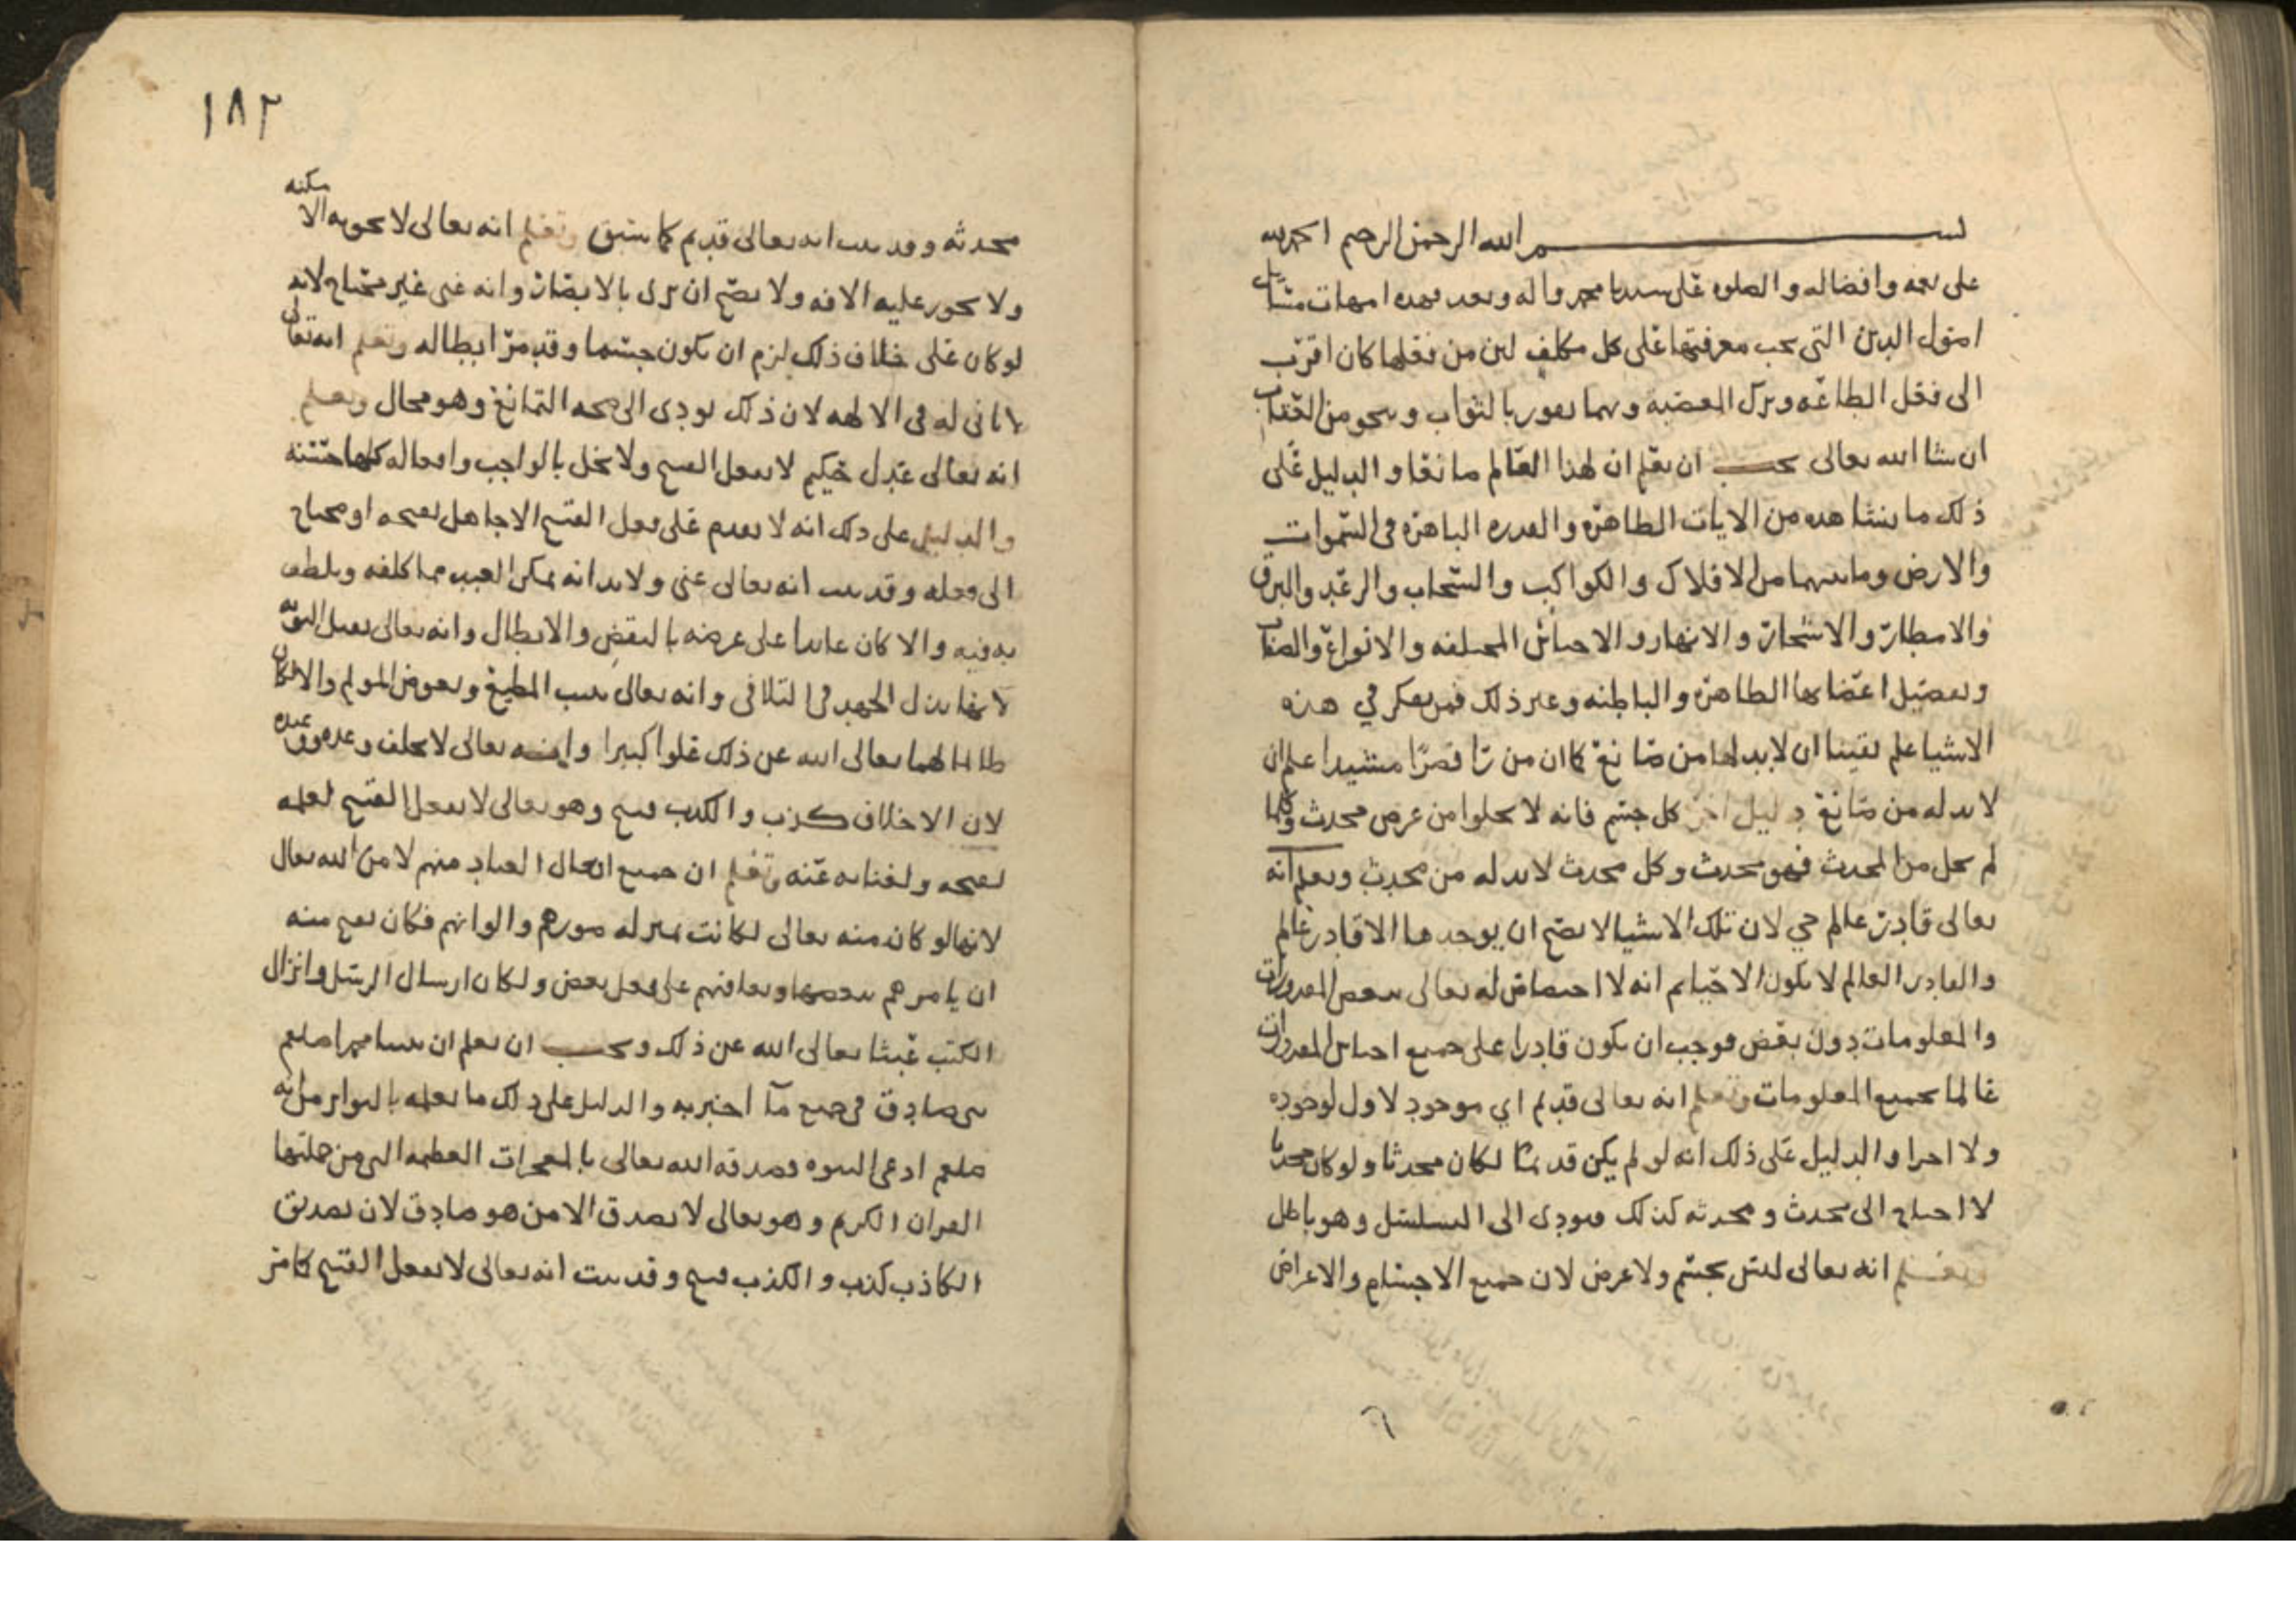 بسم الله الرحمن الرحيم الحمد لله
على نعمه وافضاله والصلوه على سيدنا محمد واله وبعد فهذه امهات مسايل
اصول الدين التي يجب معرفتها على كل مكلف لين من فعلها كان اقرب
الى فعل الطاعه وترك المعصيه وبهما يفوز بالثواب وينجو من العقاب
ان شا الله تعالى يجب ان يعلم ان لهذا العالم صانعا والدليل على
ذلك ما يشاهده من الايات الظاهره والقدره الباهره في السموات
والارض وما بينهما من الافلاك والكواكب والسحاب والرعد والبرق
والامطار والاشجار والانهار والاجناس المختلفه والانواع والصفات
وتفصيل اعضايها الظاهره والباطنه وغير ذلك فمن يفكر في هذه
الاشيا علم يقينا ان لا بد لها من صانع كما ان من را قصرا مشيدا علم ان
لا بد له من صانع دليل اخر كل جسم فانه لا يخلوا من عرض محدث وكلما
لم يخل من المحدث فهو محدث وكل محدث لا بد له من محدث ويعلم انه
تعالى قادر عالم حي لان تلك الاشيا لا يصح ان يوجدها الا قادر عالم
والقادر العالم لا يكون الا حيا ثم انه لا اختصاص له تعالى ببعض المقدورات
والمعلومات دون بعض فوجب ان يكون قادرا على جميع اجناس المقدورات
عالما بجميع المعلومات ويعلم انه تعالى قديم اي موجود لا اول لوجوده
ولا اخرا والدليل على ذلك انه لو لم يكن قديما لكان محدثا ولو كان محدثا
لا احتاج الى محدث ومحدثه كذلك فيودى الى التسلسل وهو باطل
ويعلم انه تعالى ليس بجسم ولا عرض لان جميع الاجسام والاعراض
١٨٢
محدثه وقد ثبت انه تعالى قديم كما سبق ويعلم انه تعالى لا تحويه الامكنه
ولا يجوز عليه الافه ولا يصح ان يرى بالابصار وانه غني غير محتاج لانه
لو كان على خلاف ذلك لزم ان يكون جسما وقد مر ابطاله ويعلم انه تعالى
لا ثاني له في الالهه لان ذلك يودى الى صحه التمانع وهو محال ويعلم
انه تعالى عدل حكيم لا يفعل القبيح ولا يخل بالواجب وافعاله كلها حسنه
والدليل على ذلك انه لا يقدم على فعل القبيح الا جاهل بقبحه او محتاج
الى فعله وقد ثبت انه تعالى غني ولا بد انه يمكن العبد مما كلفه ويلطف
به فيه والا كان عايدا على غرضه بالنقض والابطال وانه تعالى يقبل التوبه
لانها بذل الجهد في التلافى وانه تعالى يثيب المطيع ويعوض المولم والا لكان
ظالما لهما تعالى الله عن ذلك علوا كبيرا وانه تعالى لا يخلف وعده ووعيده
لان الاخلاف كذب والكذب قبيح وهو تعالى لا يفعل القبيح لعلمه
بقبحه ولغنايه عنه ويعلم ان جميع افعال العباد منهم لا من الله تعالى
لانها لو كان منه تعالى لكانت بمنزله صورهم والوانهم فكان يقبح منه
ان يامرهم ببعضها ويعاقبهم على فعل بعض ولكان ارسال الرسل وانزال
الكتب عبثا تعالى الله عن ذلك ويجب ان يعلم ان نبينا محمدا صلعم
نبي صادق في جميع ما اخبر به والدليل على ذلك ما نعلمه بالتواتر من انه
صلعم ادعى النبوه فصدقه الله تعالى بالمعجزات العظيمه التي من جملتها
القران الكريم وهو تعالى لا يصدق الا من هو صادق لان تصديق
الكاذب كذب والكذب قبيح وقد ثبت انه تعالى لا يفعل القبيح كما مر